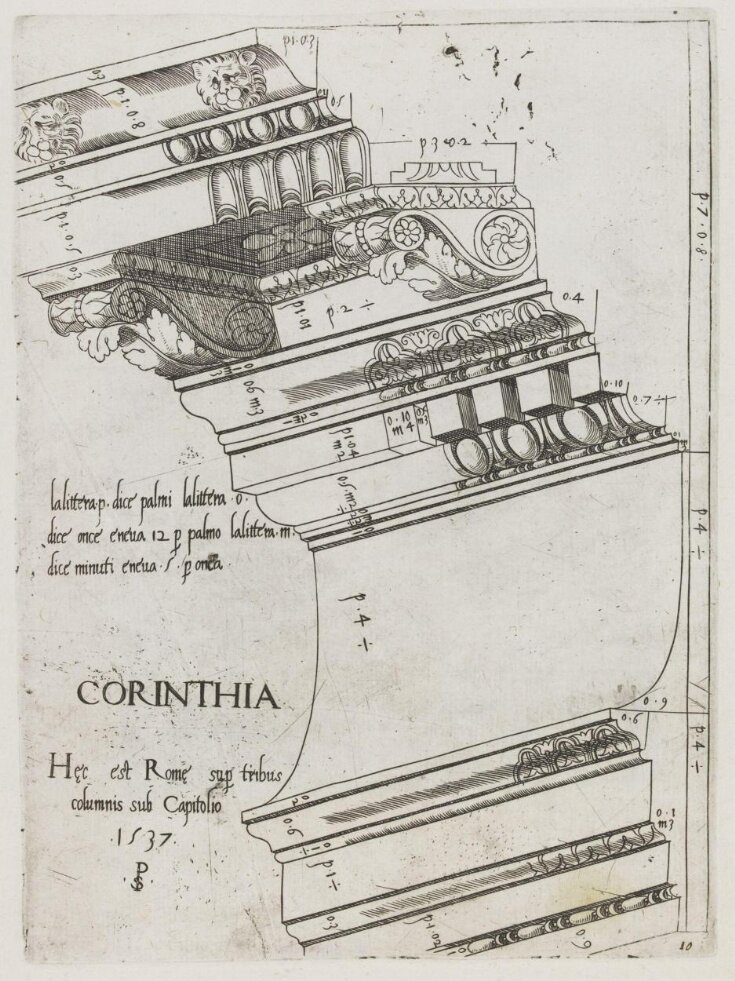 p1.0.3
03
p.1.0.8
05
p 3 0.2
p.7.0.8
p.1.05
03
p1.01
p.2 ÷
0.4
06 m3
0.10
0.7 ÷
0.10
m 4
p1.04
m2
lalittera.p. dice palmi lalittera .o.
dice once eneva 12 p palmo lalittera.m.
dice minuti eneva .5. p onca.
p.4 ÷
p.4 ÷
CORINTHIA
0.9
0.6
p.4 ÷
Hęc est Romę sup tribus
columnis sub Capitolio
.1537.
PS
0.6
0.1
m3
p.1 ÷
03
p1.02
0.9
10